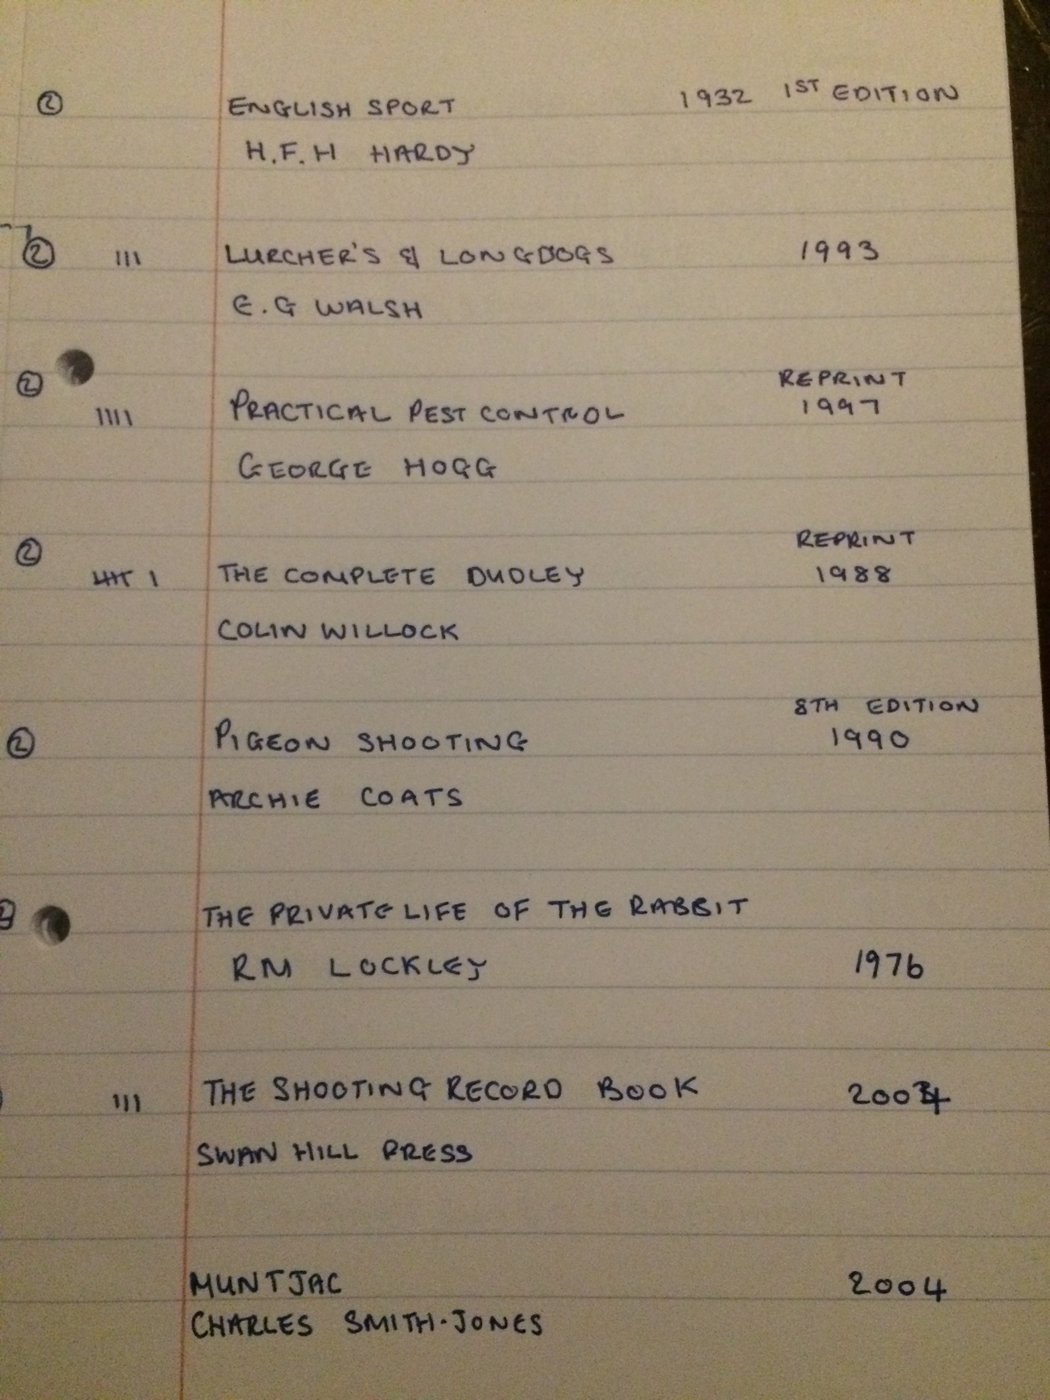 ② ENGLISH SPORT 1932 1ST EDITION
H.F.H HARDY
② III LURCHER'S & LONGDOGS 1993
E.G WALSH
② REPRINT
IIII PRACTICAL PEST CONTROL 1997
GEORGE HOGG
② REPRINT
IIII I THE COMPLETE DUDLEY 1988
COLIN WILLOCK
8TH EDITION
② PIGEON SHOOTING 1990
ARCHIE COATS
THE PRIVATE LIFE OF THE RABBIT
RM LOCKLEY 1976
III THE SHOOTING RECORD BOOK 2004
SWAN HILL PRESS
MUNTJAC 2004
CHARLES SMITH-JONES